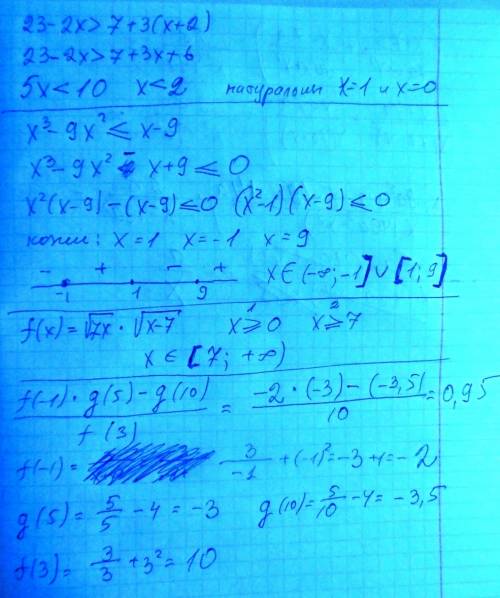 23-2x>7+3(x+2)
23-2x>7+3x+6
5x<10 x<2 натуральны x=1 и x=0
x³-9x² ≤ x-9
x³-9x² - x+9 ≤ 0
x²(x-9)-(x-9)≤0 (x²-1)(x-9)≤0
x=1 x=-1 x=9
- + - +
-1 1 9 x∈(-∞;-1]∪[1;9]
f(x)=√7x · √x-7 x≥0 x≥7
1 2
x∈[7; +∞)
f(-1)·g(5)-g(10) / f(3) = -2·(-3)-(-3,5) / 10 = 0,95
f(-1)= 3/-1 +(-1)²=-3+1=-2
g(5)= 5/5 -4=-3 g(10)= 5/10 -4=-3,5
f(3)= 3/3 +3²=10